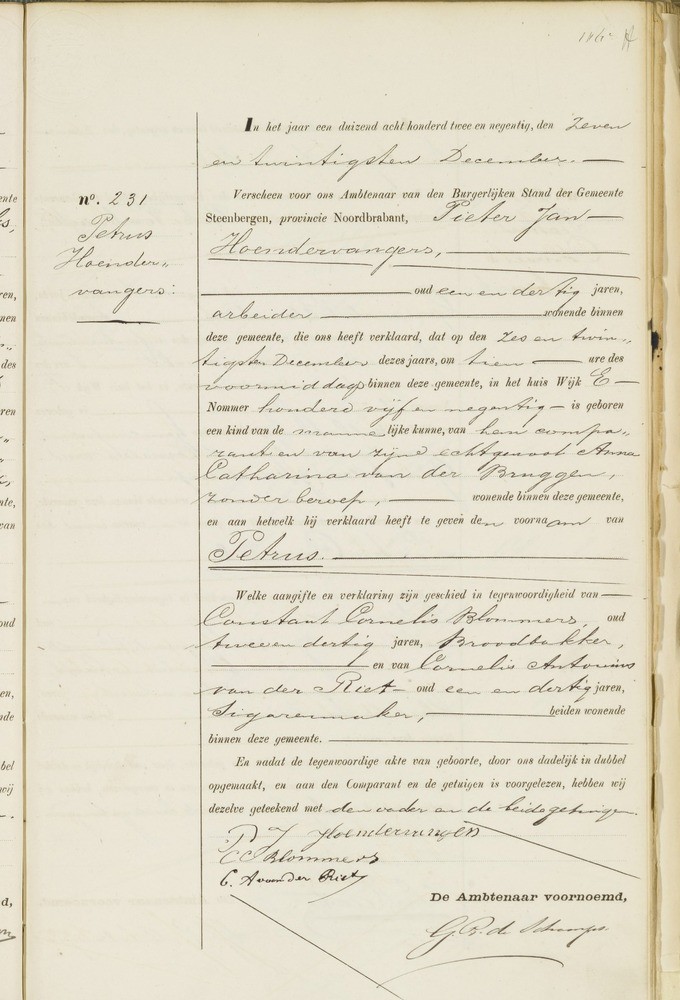 nº. 231
Petrus
Hoender„
vangers:
In het jaar een duizend acht honderd twee en negentig, den Zeven
en twintigsten December.
Verscheen voor ons Ambtenaar van den Burgerlijken Stand der Gemeente
Steenbergen, provincie Noordbrabant, Pieter Jan
Hoendervangers,
oud een en dertig jaren,
arbeider wonende binnen
deze gemeente, die ons heeft verklaard, dat op den Zes en twin„
tigsten December dezes jaars, om tien ure des
voormiddags binnen deze gemeente, in het huis Wijk E
Nommer honderd vijf en negentig is geboren
een kind van de mannelijke kunne, van hem compa„
rant en van zijne echtgenoot Anna
Catharina van der Bruggen,
zonder beroep, wonende binnen deze gemeente,
en aan hetwelk hij verklaard heeft te geven den voornaam van
Petrus.
Welke aangifte en verklaring zijn geschied in tegenwoordigheid van
Constant Cornelis Blommers, oud
twee en dertig jaren, Broodbakker,
en van Cornelis Antonius
van der Riet oud een en dertig jaren,
Sigarenmaker, beiden wonende
binnen deze gemeente.
En nadat de tegenwoordige akte van geboorte, door ons dadelijk in dubbel
opgemaakt, en aan den Comparant en de getuigen is voorgelezen, hebben wij
dezelve geteekend met den vader en de beide getuigen.
P J Hoendervangers
CC Blommers
C. A van der Riet
De Ambtenaar voornoemd,